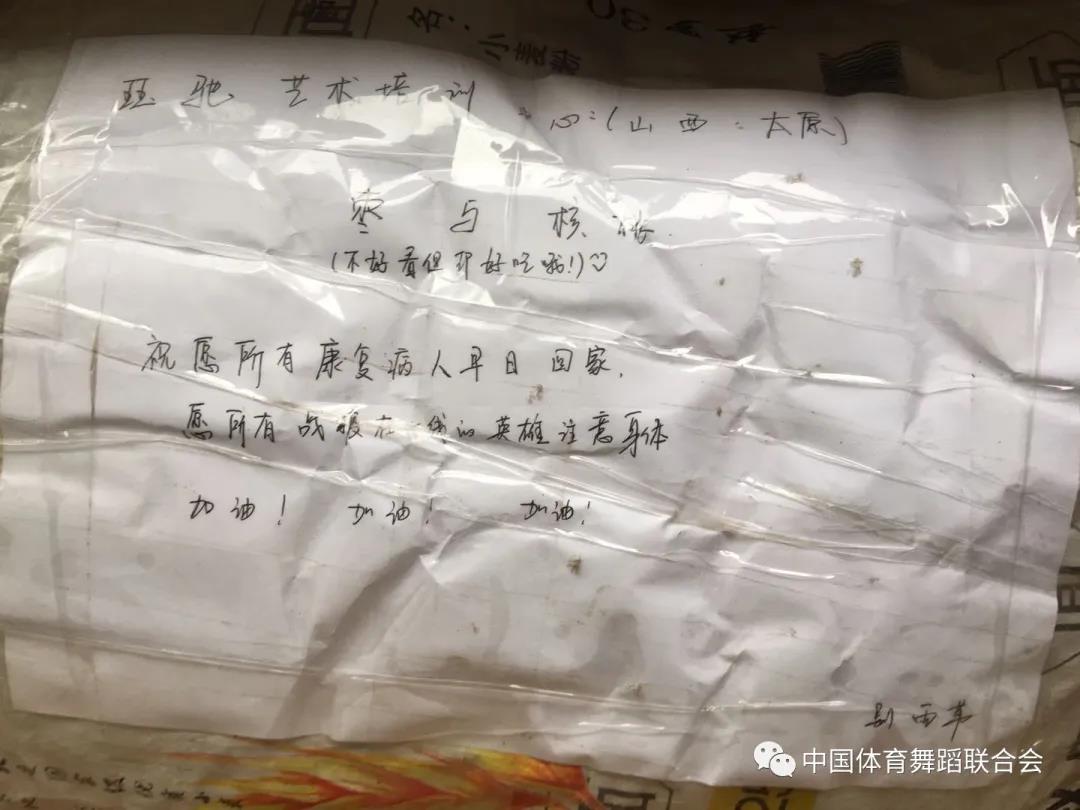 名:小麦粉
珏驰 艺术培训
心:(山西:太原)
枣与核
(不好看但却好吃哦!)
祝愿所有康复病人早日回家.
愿所有战疫在一线的英雄注意身体
加油! 加油! 加油!
中国体育舞蹈联合会